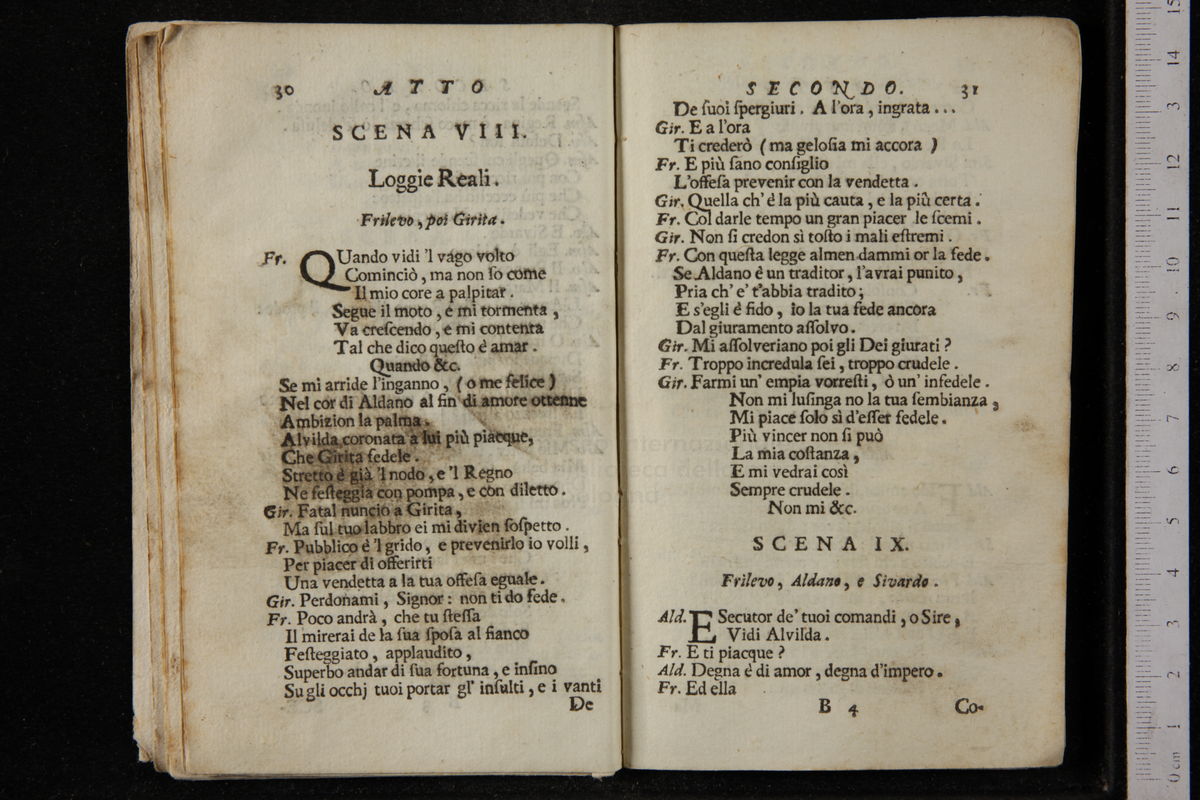 30 ATTO
SCENA VIII.
Loggie Reali.
Frilevo, poi Girita.
Fr. QUando vidi 'l vago volto
Cominciò, ma non ſo come
Il mio core a palpitar.
Segue il moto, e mi tormenta,
Va creſcendo, e mi contenta
Tal che dico queſto è amar.
Quando &c.
Se mi arride l'inganno, (o me felice)
Nel cor di Aldano al fin di amore ottenne
Ambizion la palma.
Alvilda coronata a lui più piacque,
Che Girita fedele.
Stretto è già 'l nodo, e 'l Regno
Ne feſteggia con pompa, e con diletto.
Gir. Fatal nuncio a Girita,
Ma ſul tuo labbro ei mi divien ſoſpetto.
Fr. Pubblico è 'l grido, e prevenirlo io volli,
Per piacer di offerirti
Una vendetta a la tua offeſa eguale.
Gir. Perdonami, Signor: non ti do fede.
Fr. Poco andrà, che tu ſteſſa
Il mirerai de la ſua ſpoſa al fianco
Feſteggiato, applaudito,
Superbo andar di ſua fortuna, e inſino
Su gli occhj tuoi portar gl' inſulti, e i vanti
De
SECONDO. 31
De ſuoi ſpergiuri. A l'ora, ingrata...
Gir. E a l'ora
Ti crederò (ma geloſia mi accora)
Fr. E più ſano conſiglio
L'offeſa prevenir con la vendetta.
Gir. Quella ch' è la più cauta, e la più certa.
Fr. Col darle tempo un gran piacer le ſcemi.
Gir. Non ſi credon sì toſto i mali eſtremi.
Fr. Con queſta legge almen dammi or la fede.
Se Aldano è un traditor, l'avrai punito,
Pria ch' e' t'abbia tradito;
E s'egli è fido, io la tua fede ancora
Dal giuramento aſſolvo.
Gir. Mi aſſolveriano poi gli Dei giurati?
Fr. Troppo incredula ſei, troppo crudele.
Gir. Farmi un' empia vorreſti, ò un' infedele.
Non mi luſinga no la tua ſembianza,
Mi piace ſolo sì d'eſſer fedele.
Più vincer non ſi può
La mia coſtanza,
E mi vedrai così
Sempre crudele.
Non mi &c.
SCENA IX.
Frilevo, Aldano, e Sivardo.
Ald. ESecutor de' tuoi comandi, o Sire,
Vidi Alvilda.
Fr. E ti piacque?
Ald. Degna è di amor, degna d'impero.
Fr. Ed ella
B 4 Co-